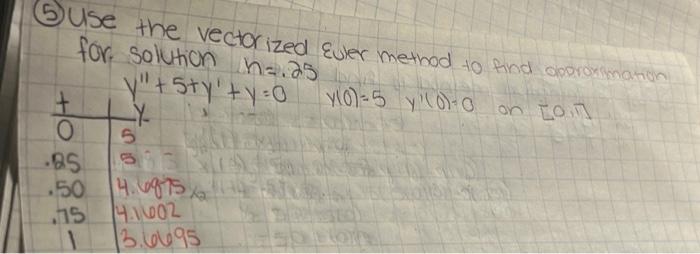 ⑤ Use the vectorized Euler method to find approximation
for solution h=.25
y"+5+y'+y=0 y(0)=5 y'(0)=0 on [0,1]
t y
0 5
.25 5
.50 4.6875
.75 4.1602
1 3.6695